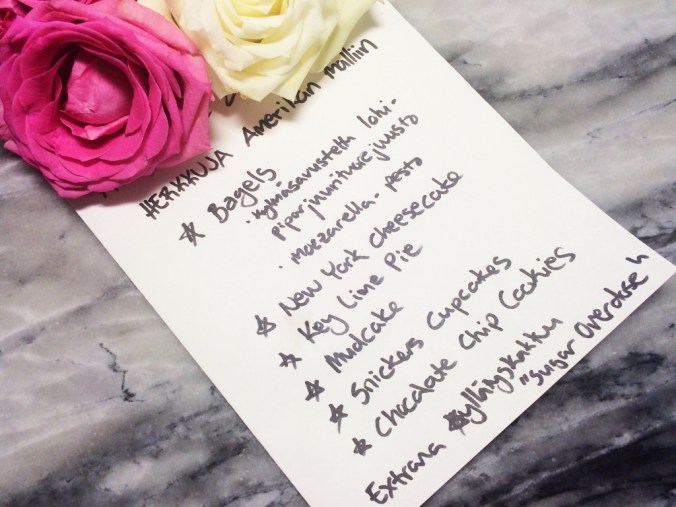 HERKKUJA Amerikan malliin
☆ Bagels
· kylmäsavustettu lohi-
piparjuurituorejuusto
· mozzarella-pesto
☆ New York Cheesecake
☆ Key Lime Pie
☆ Mudcake
☆ Snickers Cupcakes
☆ Chocolate Chip Cookies
Extrana yllätyskakku
"Sugar Overdose"